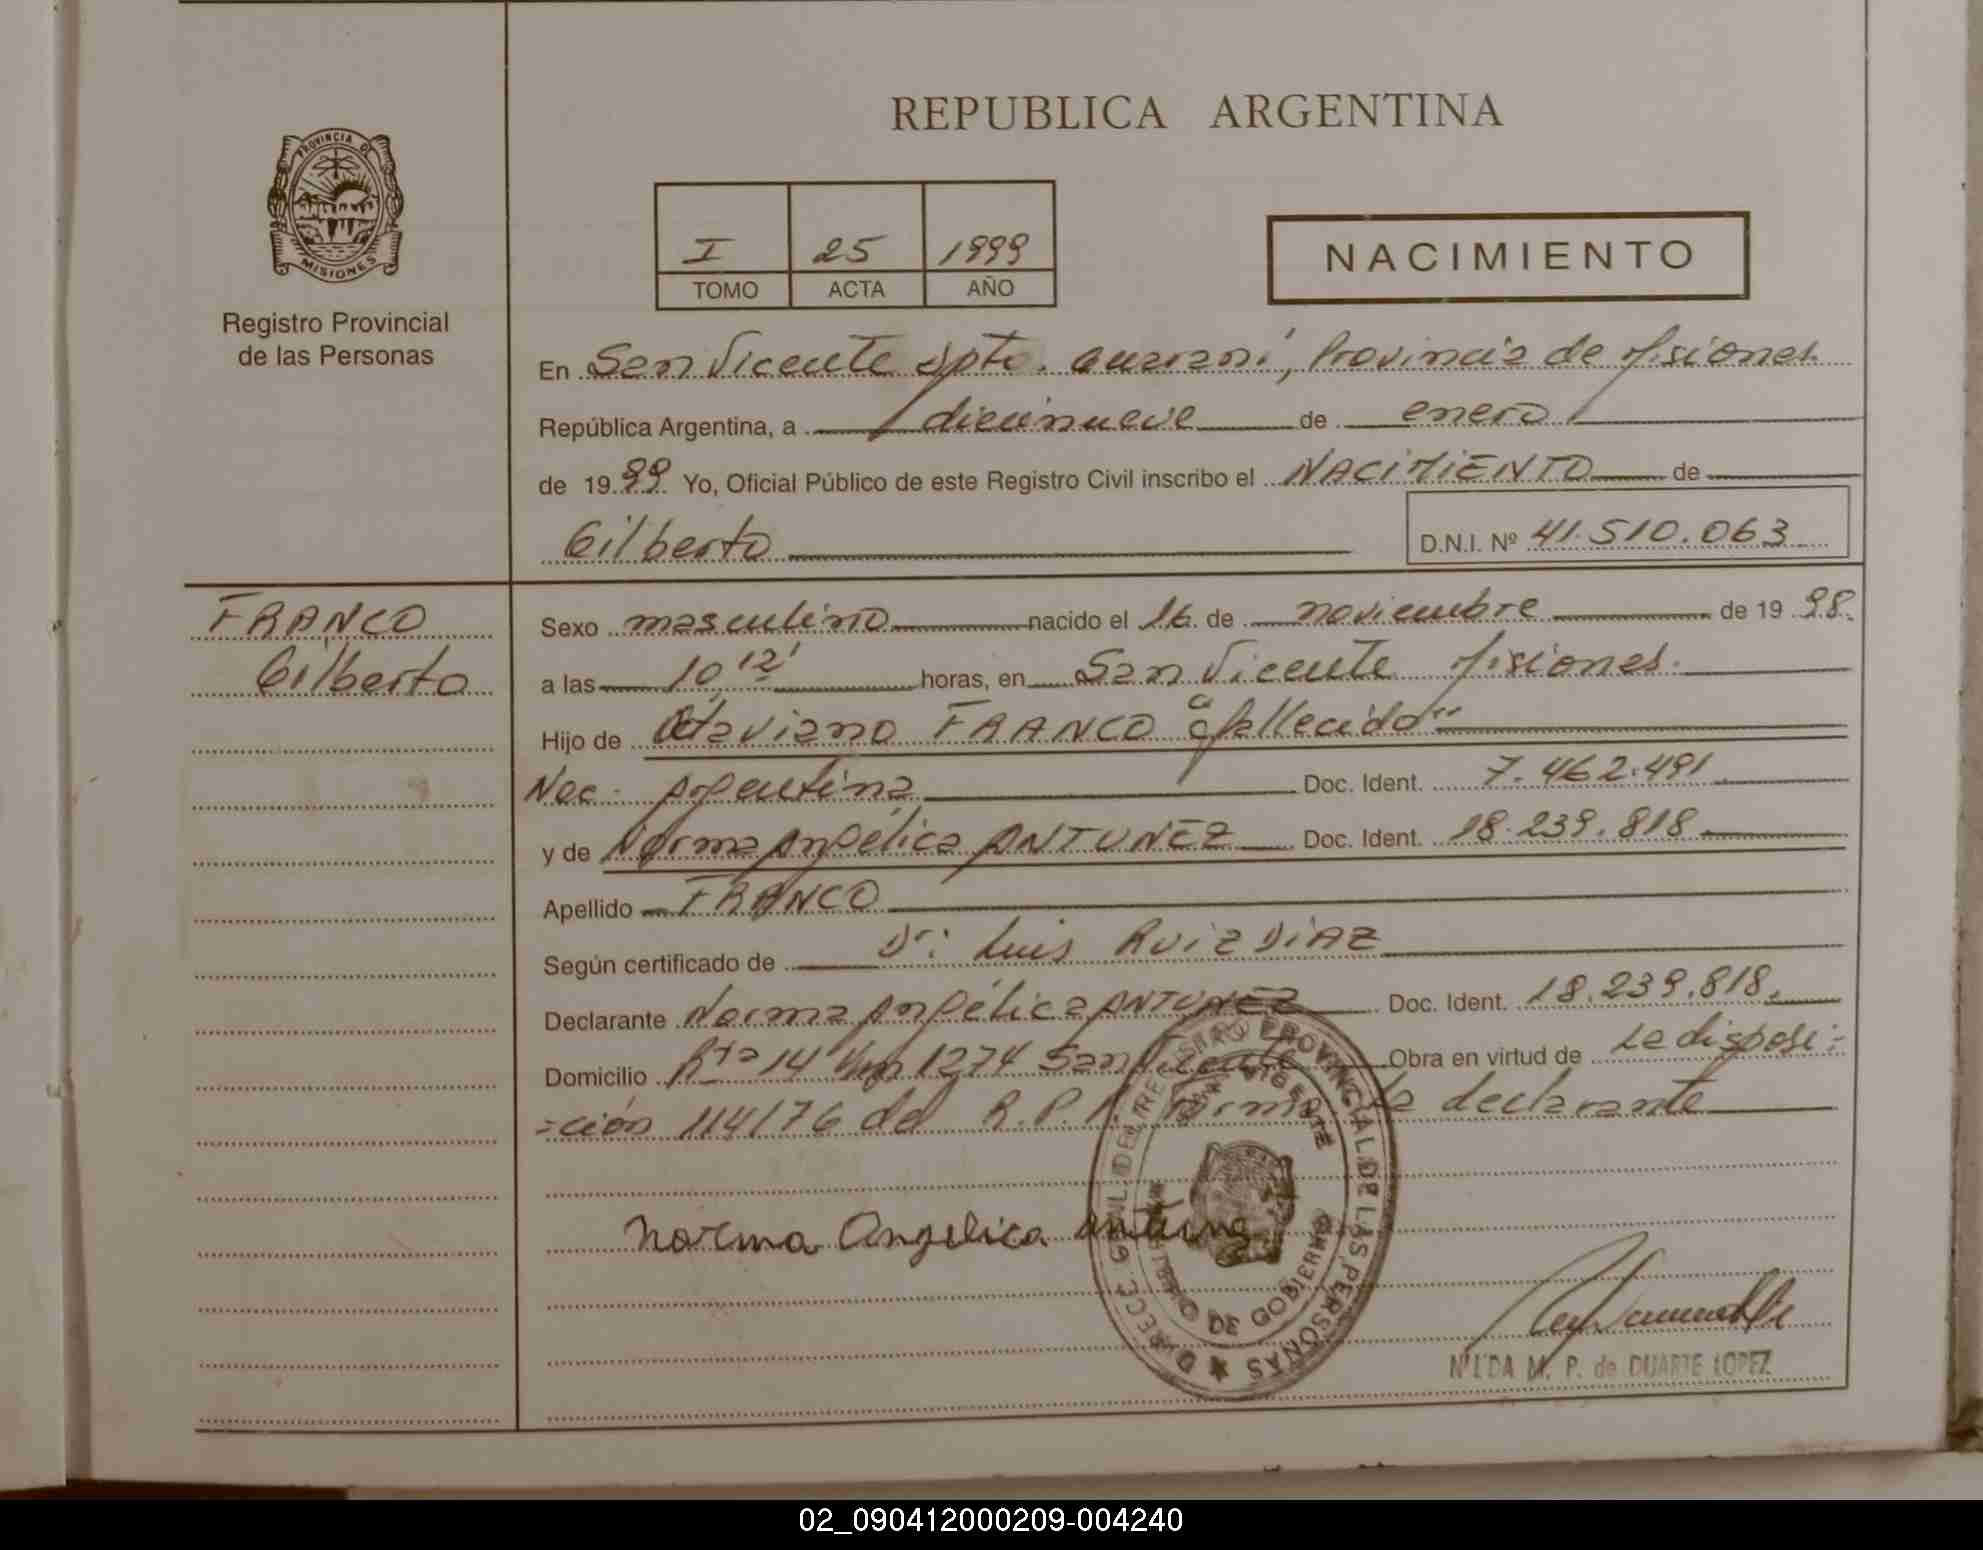 REPUBLICA ARGENTINA
PROVINCIA DE
MISIONES
Registro Provincial
de las Personas
I 25 1999
TOMO ACTA AÑO
NACIMIENTO
En San Vicente Dpto. Guaraní, Provincia de Misiones
República Argentina, a diecinueve de enero
de 1999 Yo, Oficial Público de este Registro Civil inscribo el NACIMIENTO de
Gilberto
D.N.I. Nº 41.510.063
FRANCO
Gilberto
Sexo masculino nacido el 16 de noviembre de 1998.
a las 10,12' horas, en San Vicente Misiones.
Hijo de Otaviano FRANCO "fallecido"
Nac. Argentina Doc. Ident. 7.462.491
y de Norma Angélica ANTUNEZ Doc. Ident. 18.239.818
Apellido FRANCO
Según certificado de Dr: Luis RUIZ DIAZ
Declarante Norma Angélica ANTUNEZ Doc. Ident. 18.239.818.
Domicilio Rta 14 Km 1274 San Vicente Obra en virtud de La disposi-
-ción 114/76 del R.P.P. Firma la declarante
Norma Angelica
DIREC. GRAL. DEL REGISTRO PROVINCIAL DE LAS PERSONAS
DE GOBIERNO
NILDA M. P. de DUARTE LOPEZ
02_090412000209-004240